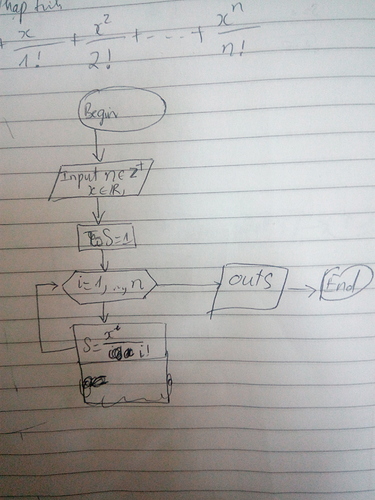 + x/1! + x²/2! + ..... + xⁿ/n!
Begin
Input n ∈ Z⁺
x ∈ R,
S=1
i=1,...,n
out S
End
S = xⁱ/i!